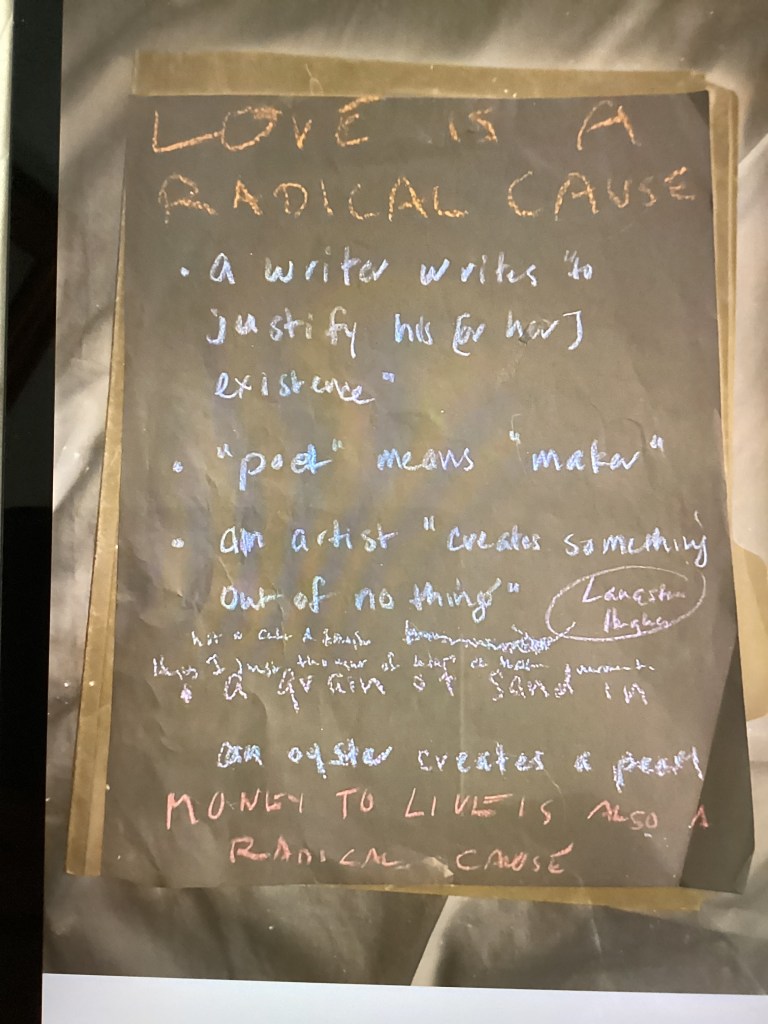 LOVE IS A
RADICAL CAUSE
• a writer writes "to
justify his [or her]
existence"
• "poet" means "maker"
• an artist "creates something
out of nothing"
Langston
Hughes
• a grain of sand in
an oyster creates a pearl
MONEY TO LIVE IS ALSO A
RADICAL CAUSE